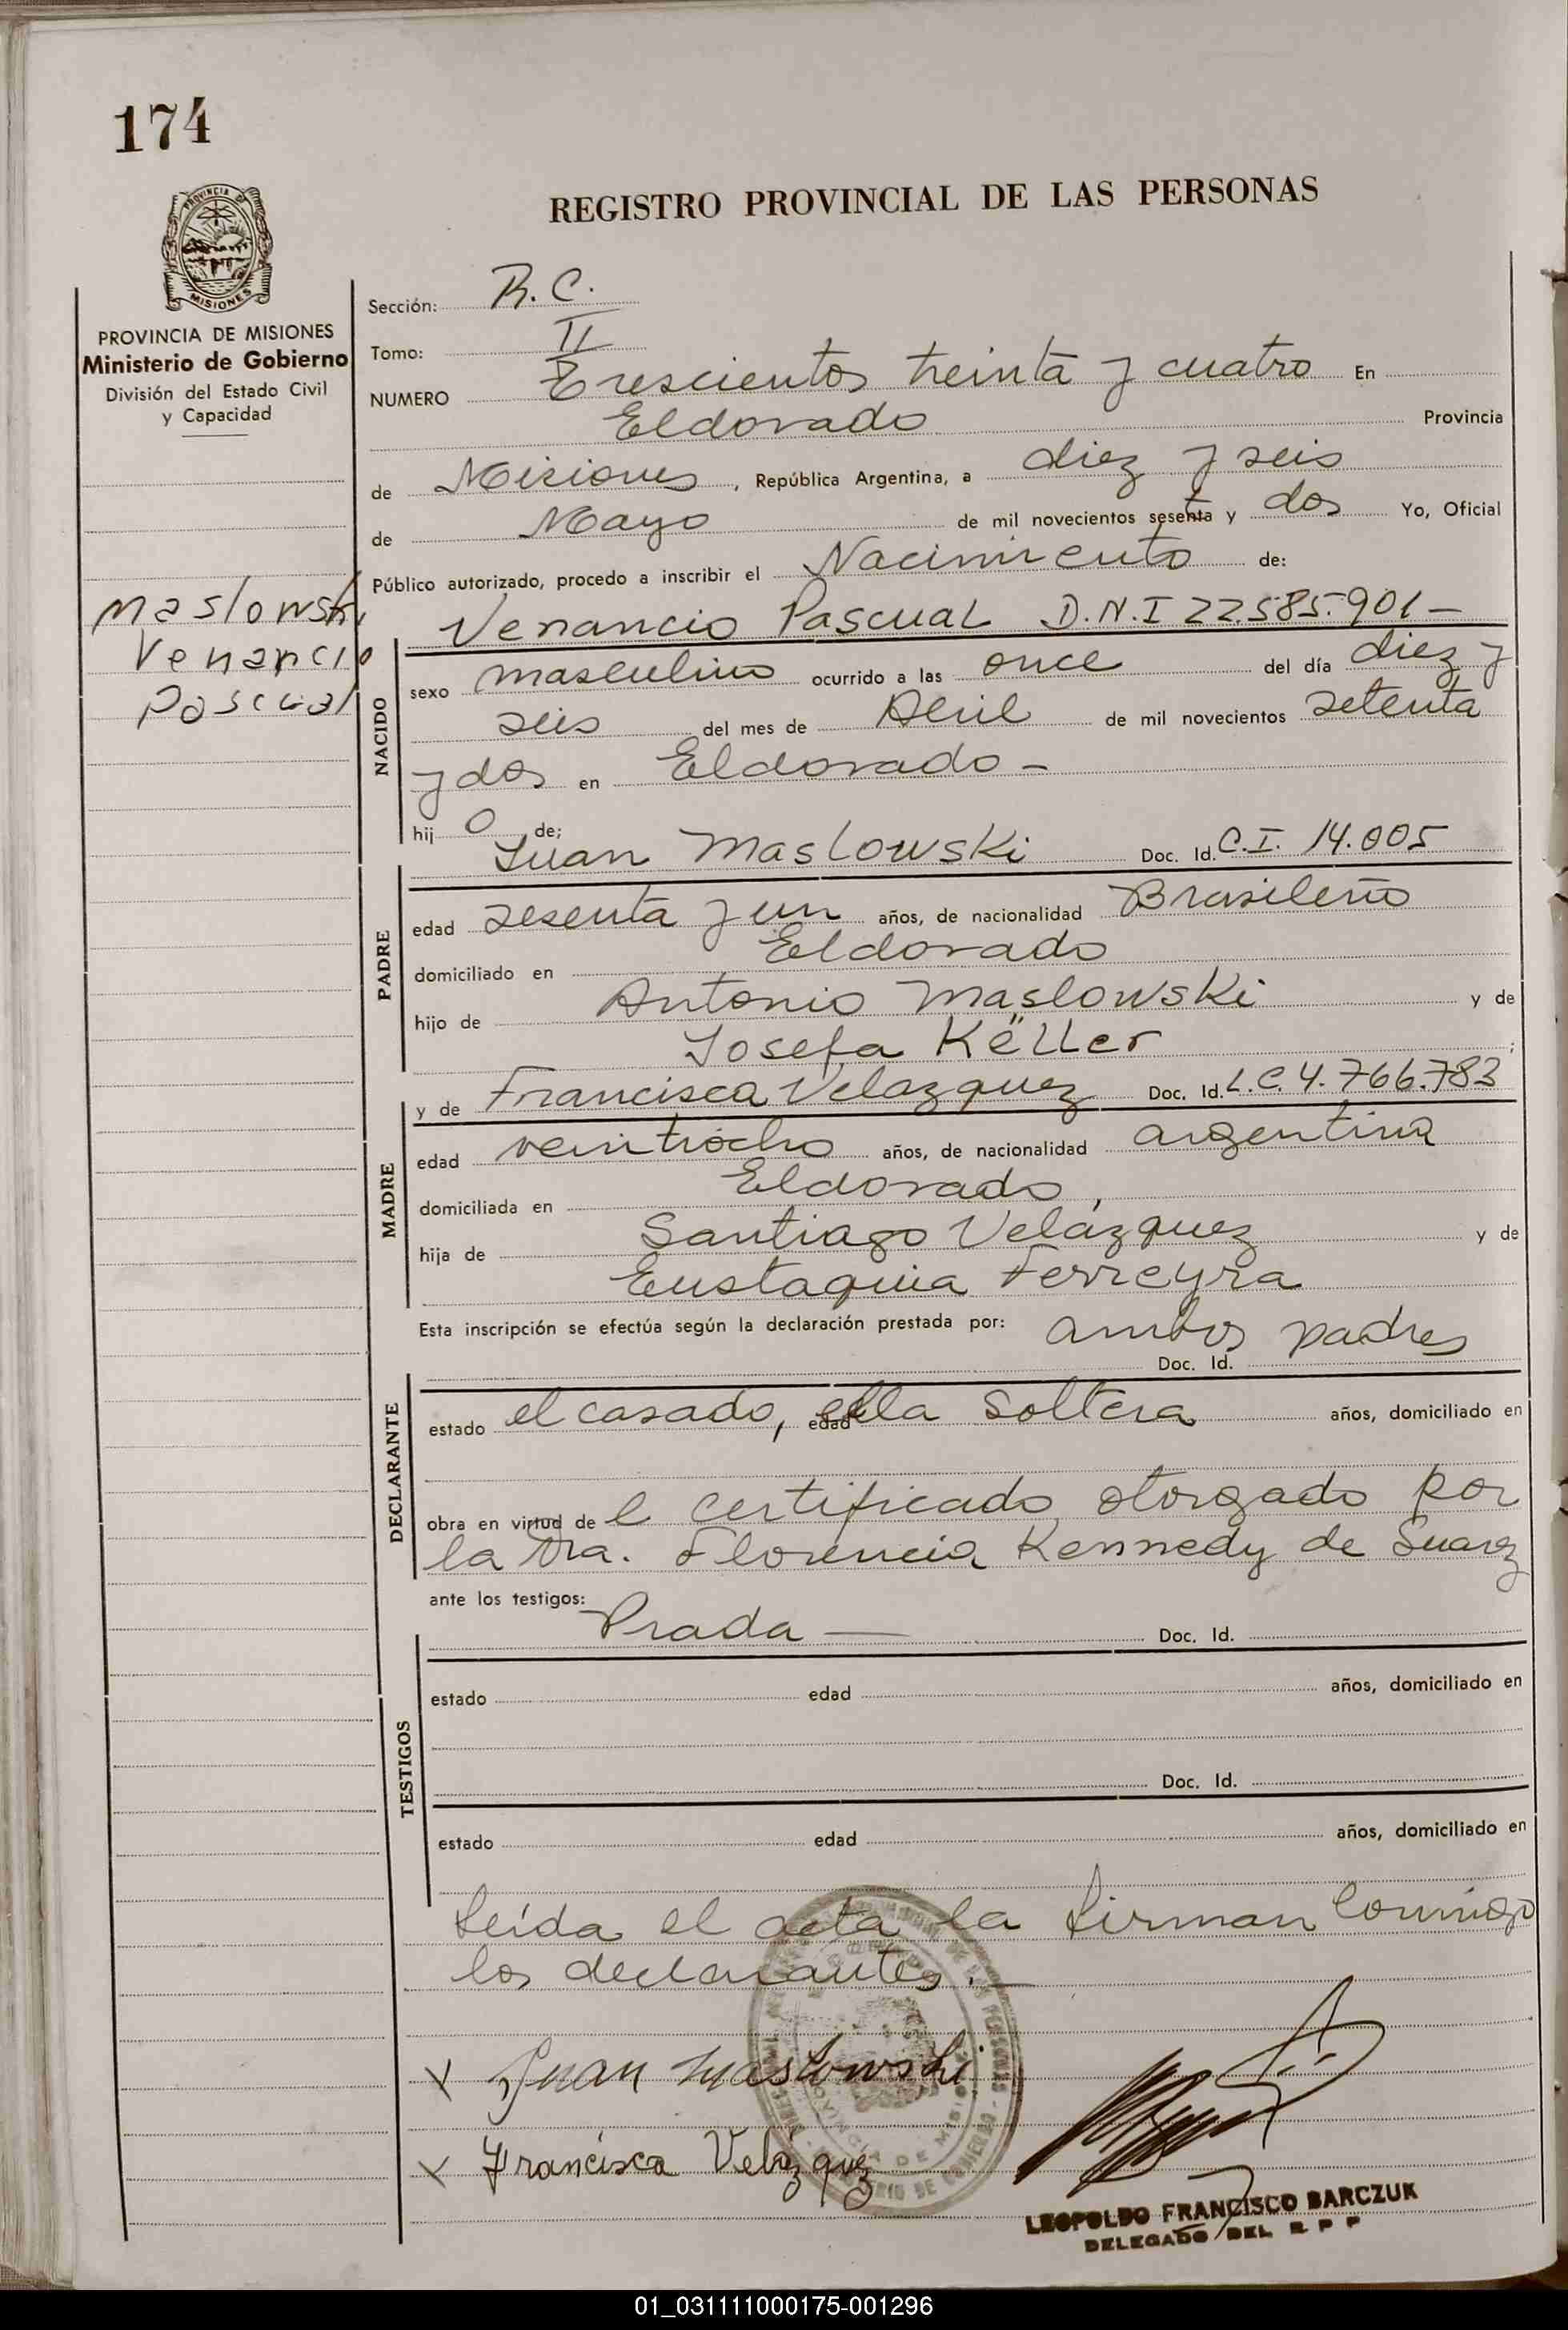 174
PROVINCIA DE
MISIONES
REGISTRO PROVINCIAL DE LAS PERSONAS
PROVINCIA DE MISIONES
Ministerio de Gobierno
División del Estado Civil
y Capacidad
Maslowski
Venancio
Pascual
Sección: R. C.
Tomo: II
NUMERO Trescientos treinta y cuatro En
Eldorado Provincia
de Misiones, República Argentina, a diez y seis
de Mayo de mil novecientos sesenta y dos Yo, Oficial
Público autorizado, procedo a inscribir el Nacimiento de:
Venancio Pascual D.N.I 22.585.901-
NACIDO
sexo masculino ocurrido a las once del día diez y
seis del mes de Abril de mil novecientos setenta
y dos en Eldorado -
hijo de;
Juan Maslowski Doc. Id. C.I. 14.005
PADRE
edad sesenta y un años, de nacionalidad Brasileño
domiciliado en Eldorado
hijo de Antonio Maslowski y de
Josefa Këller
y de Francisca Velazquez Doc. Id. L.C. 4.766.783
MADRE
edad veintiocho años, de nacionalidad argentina
domiciliada en Eldorado,
hija de Santiago Velázquez y de
Eustaquia Ferreyra
Esta inscripción se efectúa según la declaración prestada por: ambos padres
Doc. Id.
DECLARANTE
estado el casado, edad ella soltera años, domiciliado en
obra en virtud de l certificado otorgado por
la Dra. Florencia Kennedy de Suarez
ante los testigos: Prada —
Doc. Id.
TESTIGOS
estado edad años, domiciliado en
Doc. Id.
estado edad años, domiciliado en
Leída el acta la firman conmigo
los declarantes. —
x Juan Maslowski
x Francisca Velázquez
LEOPOLDO FRANCISCO BARCZUK
DELEGADO DEL R P P
01_031111000175-001296